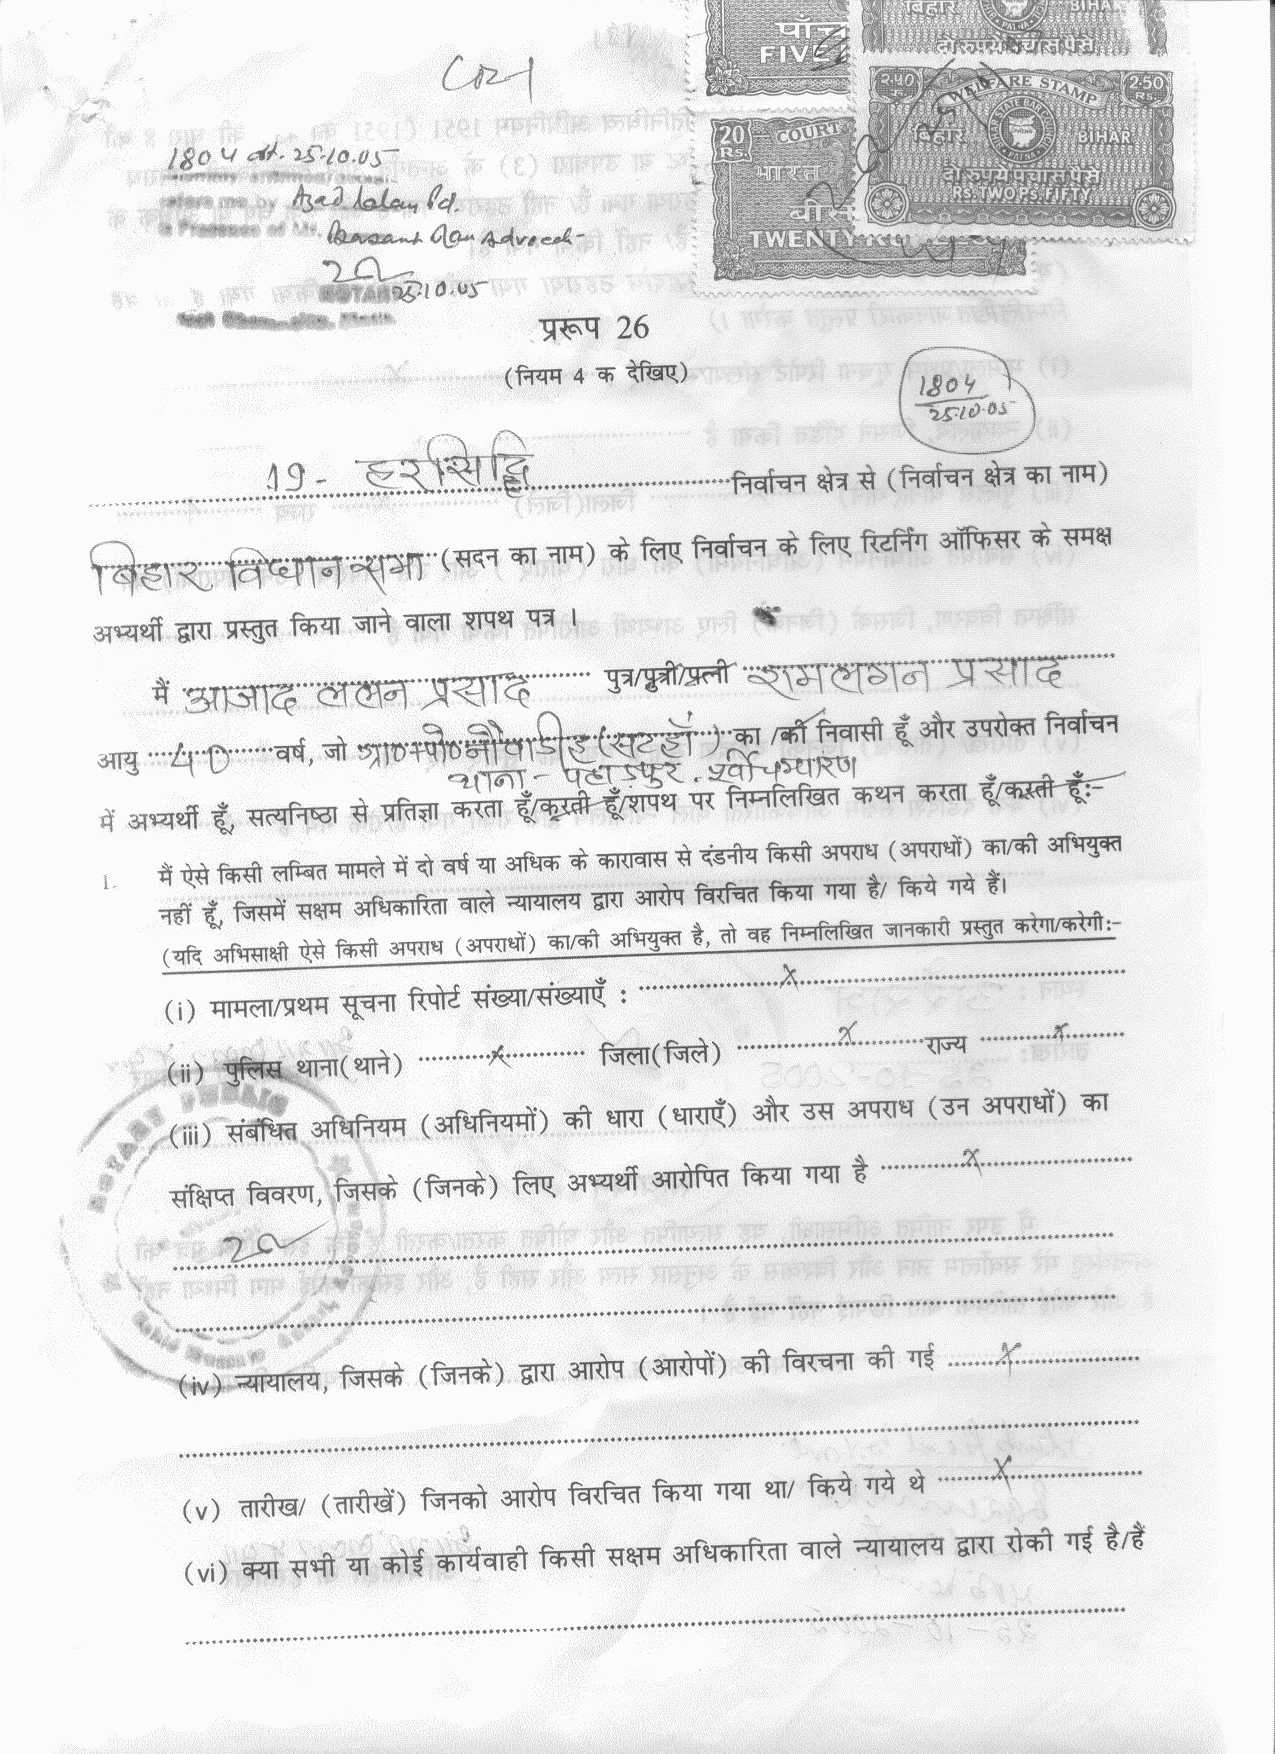 पाँच
FIVE
बिहार BIHAR
दो रूपये पचास पैसे
2.50 WELFARE STAMP 2.50
Rs.
STATE BAR
बिहार BIHAR
दो रूपये पचास पैसे
Rs. TWO Ps. FIFTY
20 COURT
Rs.
भारत
बीस
TWENTY
1804 dt. 25.10.05
before me by Azad Lalan Pd.
in Presence of Mr. Basant Advocate
NOTARY 25.10.05
प्ररूप 26
(नियम 4 क देखिए)
1804
25.10.05
19- हरसिद्धि निर्वाचन क्षेत्र से (निर्वाचन क्षेत्र का नाम)
बिहार विधान सभा (सदन का नाम) के लिए निर्वाचन के लिए रिटर्निंग ऑफिसर के समक्ष
अभ्यर्थी द्वारा प्रस्तुत किया जाने वाला शपथ पत्र ।
मैं आजाद ललन प्रसाद पुत्र/पुत्री/पत्नी रामलगन प्रसाद
आयु 40 वर्ष, जो ग्रा०+पो० नौवाडीह (सटहाँ) का /की निवासी हूँ और उपरोक्त निर्वाचन
थाना - पहाड़पुर, पूर्वी चम्पारण
में अभ्यर्थी हूँ, सत्यनिष्ठा से प्रतिज्ञा करता हूँ/करती हूँ/शपथ पर निम्नलिखित कथन करता हूँ/करती हूँ:-
1. मैं ऐसे किसी लम्बित मामले में दो वर्ष या अधिक के कारावास से दंडनीय किसी अपराध (अपराधों) का/की अभियुक्त
नहीं हूँ, जिसमें सक्षम अधिकारिता वाले न्यायालय द्वारा आरोप विरचित किया गया है/ किये गये हैं।
(यदि अभिसाक्षी ऐसे किसी अपराध (अपराधों) का/की अभियुक्त है, तो वह निम्नलिखित जानकारी प्रस्तुत करेगा/करेगी:-
(i) मामला/प्रथम सूचना रिपोर्ट संख्या/संख्याएँ : x
(ii) पुलिस थाना(थाने) x जिला(जिले) x राज्य x
(iii) संबंधित अधिनियम (अधिनियमों) की धारा (धाराएँ) और उस अपराध (उन अपराधों) का
संक्षिप्त विवरण, जिसके (जिनके) लिए अभ्यर्थी आरोपित किया गया है x
(iv) न्यायालय, जिसके (जिनके) द्वारा आरोप (आरोपों) की विरचना की गई x
(v) तारीख/ (तारीखें) जिनको आरोप विरचित किया गया था/ किये गये थे x
(vi) क्या सभी या कोई कार्यवाही किसी सक्षम अधिकारिता वाले न्यायालय द्वारा रोकी गई है/हैं